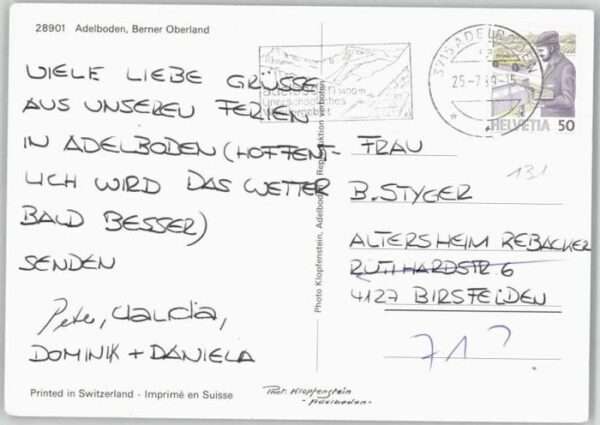 28901 Adelboden, Berner Oberland
VIELE LIEBE GRÜSSE
AUS UNSEREN FERIEN
IN ADELBODEN (HOFFENT-
LICH WIRD DAS WETTER
BALD BESSER)
SENDEN
Peter, Claudia,
DOMINIK + DANIELA
Printed in Switzerland - Imprimé en Suisse
Photo Klopfenstein, Adelboden, Reproduktion verboten
Phot. Klopfenstein
- Adelboden -
3715 ADELBODEN
25-7
HELVETIA 50
131
FRAU
B. STYGER
ALTERSHEIM REBACKER
RÜTTIHARDSTR. 6
4127 BIRSFELDEN
71?